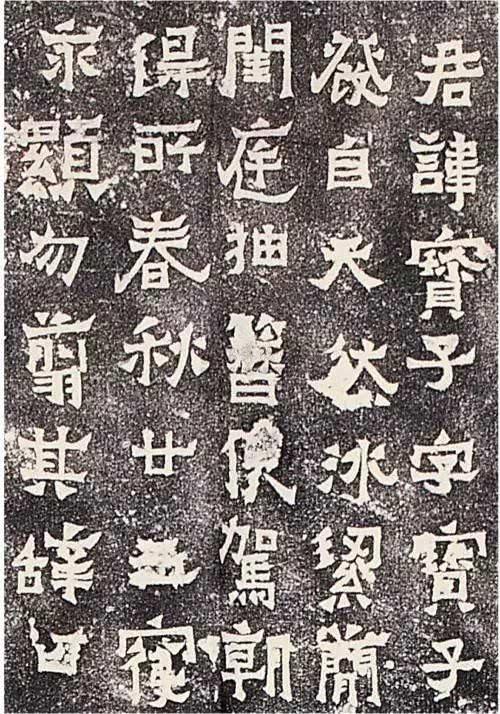 君諱寶子字寶子
發自天然冰絜簡
閨庭抽簪俟駕朝
得所春秋廿五寢
永顯勿翦其辭曰